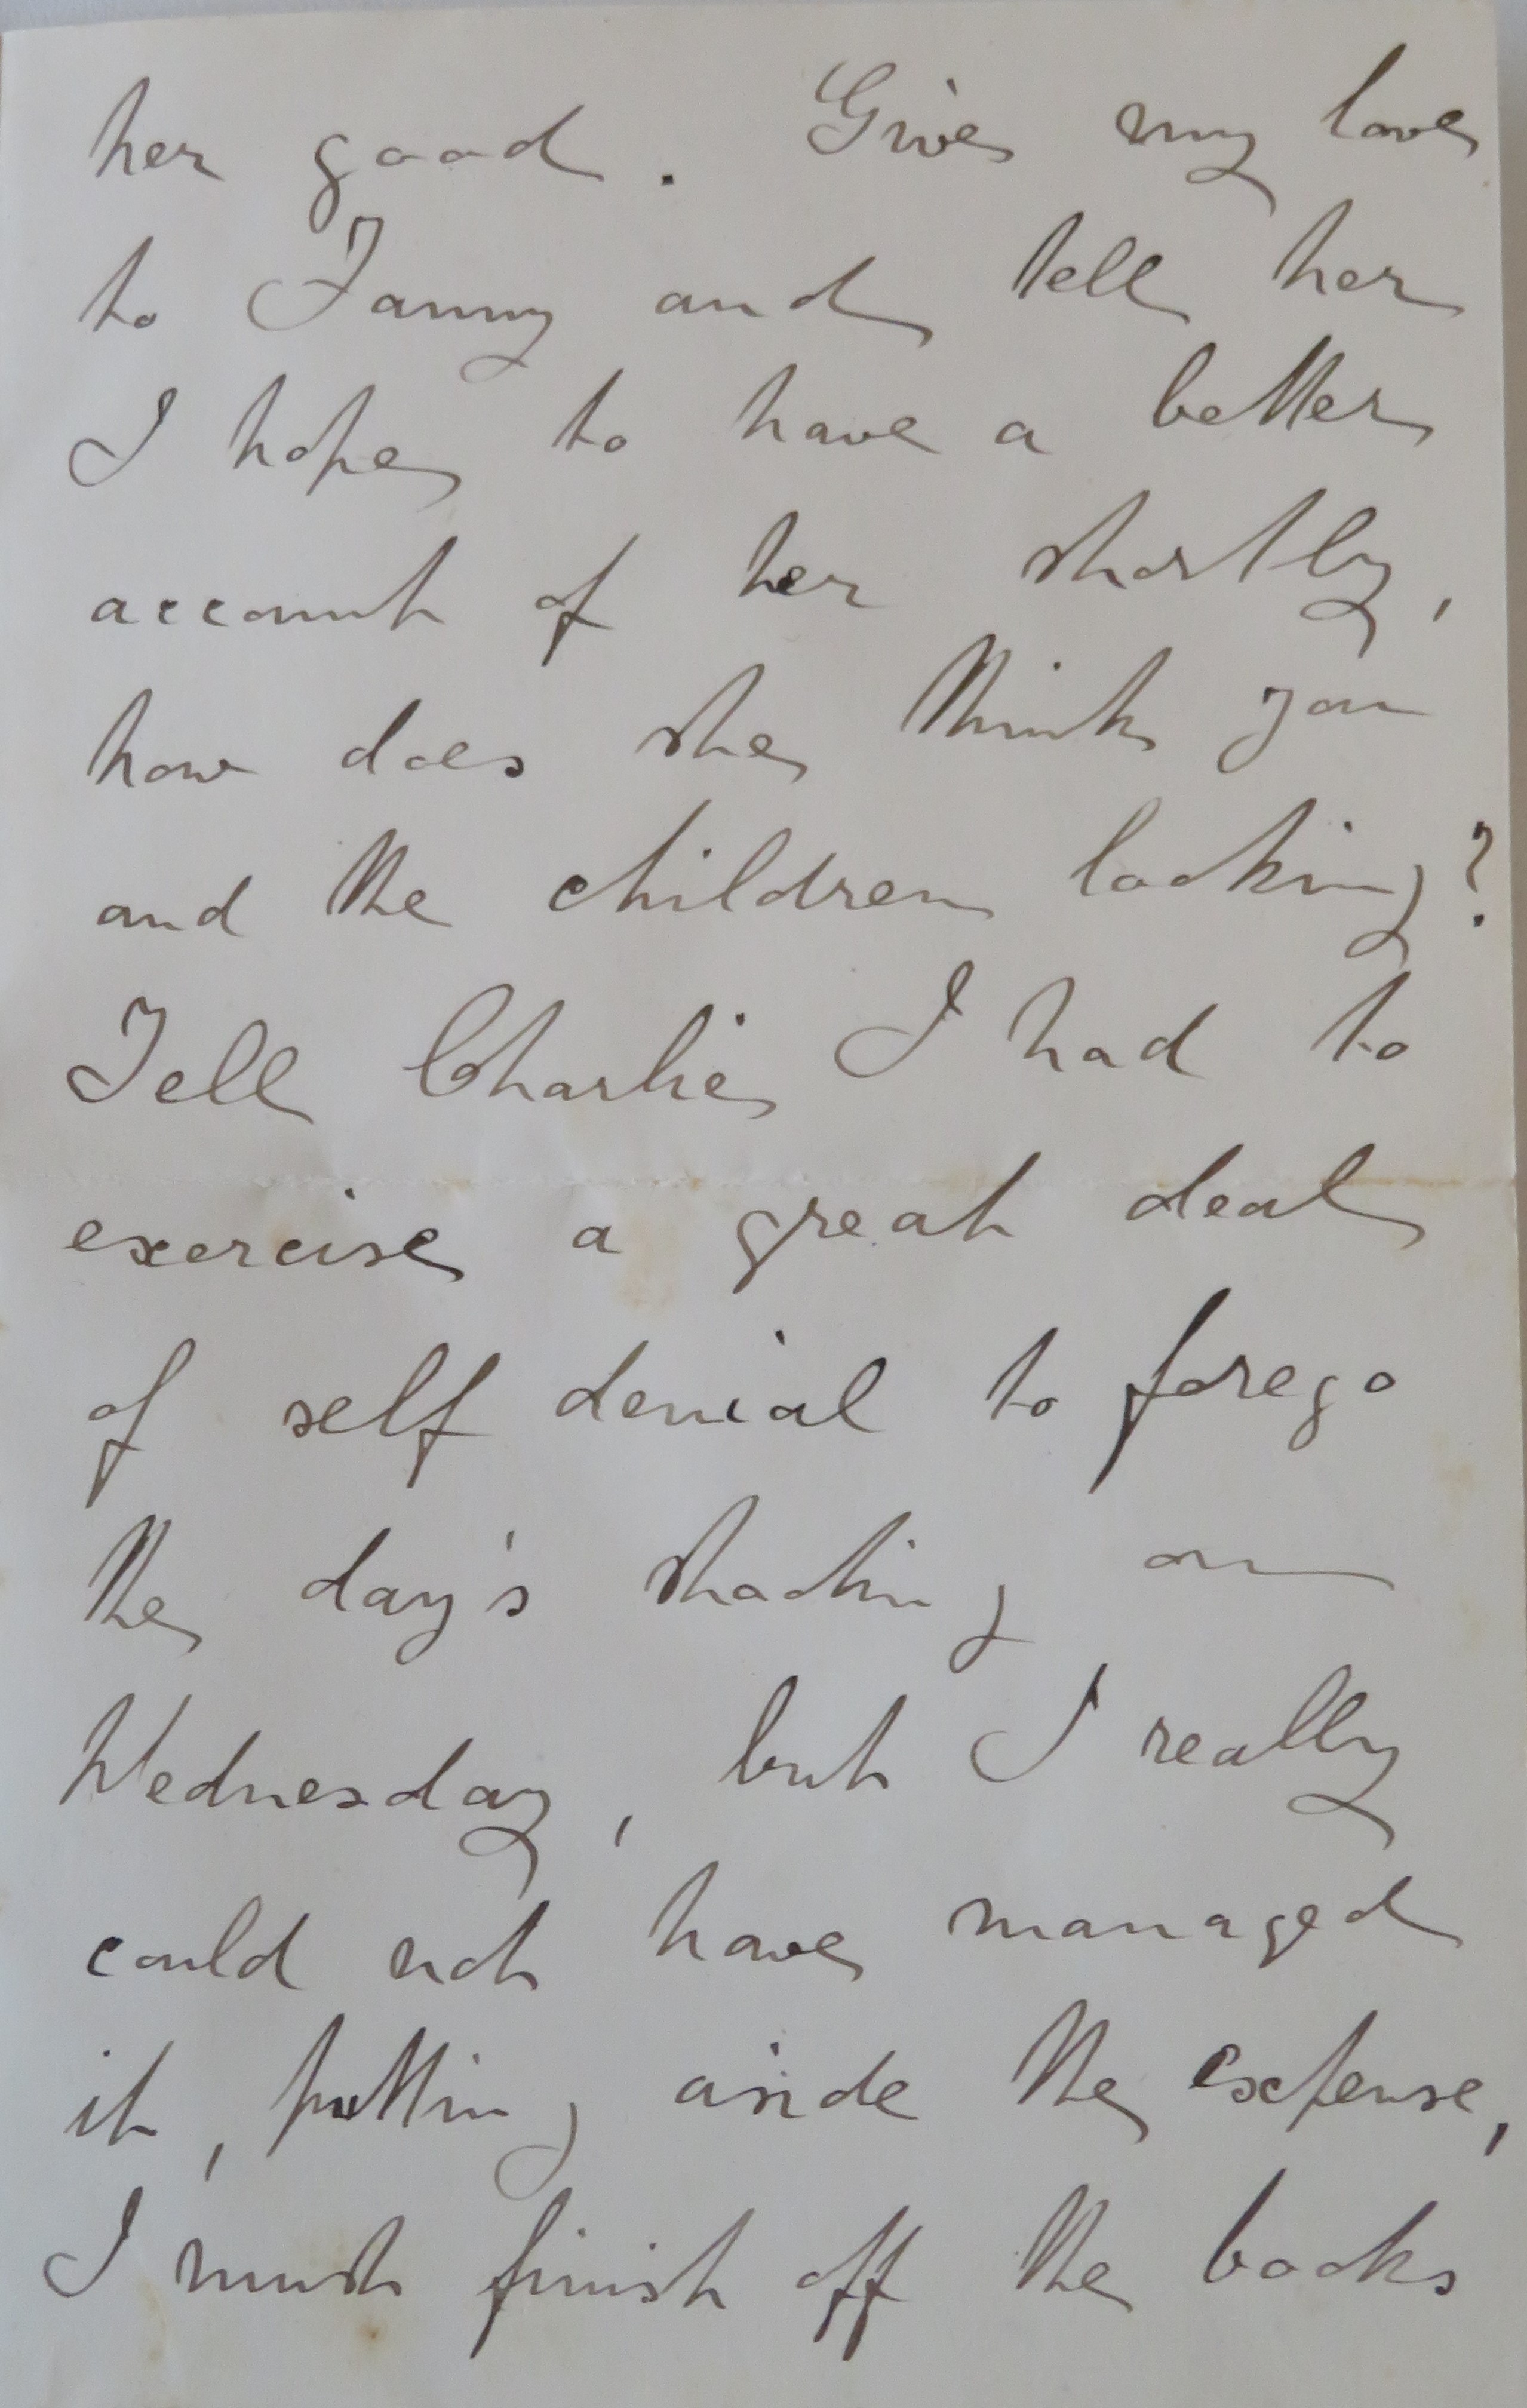 her good. Give my love
to Fanny and tell her
I hope to have a better
account of her shortly,
how does she think you
and the children looking?
Tell Charlie I had to
exercise a great deal
of self denial to forego
the day's shooting on
Wednesday, but I really
could not have managed
it, putting aside the expense,
I must finish off the books